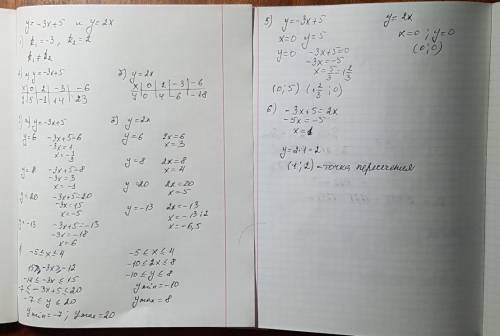 y=-3x+5 и y=2x
k₁=-3, k₂=2
k₁≠k₂
y=-3x+5
x 0 2 -3 -6
y 5 -1 14 23
2) y=2x
x 0 2 -3 -6
y 0 4 -6 -18
y=-3x+5
y=6 -3x+5=6
-3x=1
x=-1/3
y=8 -3x+5=8
-3x=3
x=-1
y=20 -3x+5=20
-3x=15
x=-5
y=-13 -3x+5=-13
-3x=-18
x=6
2) y=2x
y=6 2x=6
x=3
y=8 2x=8
x=4
y=20 2x=20
x=5
y=-13 2x=-13
x=-13:2
x=-6,5
-5≤x≤4
15≥-3x≥-12
-12≤-3x≤15
-7≤-3x+5≤20
-7≤y≤20
ymin=-7; ymax=20
-5≤x≤4
-10≤2x≤8
-10≤y≤8
ymin=-10
ymax=8
5) y=-3x+5
x=0 y=5
y=0 -3x+5=0
-3x=-5
x=5/3=1 2/3
(0;5) (1 2/3;0)
y=2x
x=0; y=0
(0;0)
6) -3x+5=2x
-5x=-5
x=1
y=2·1=2
(1;2)-точка пересечения